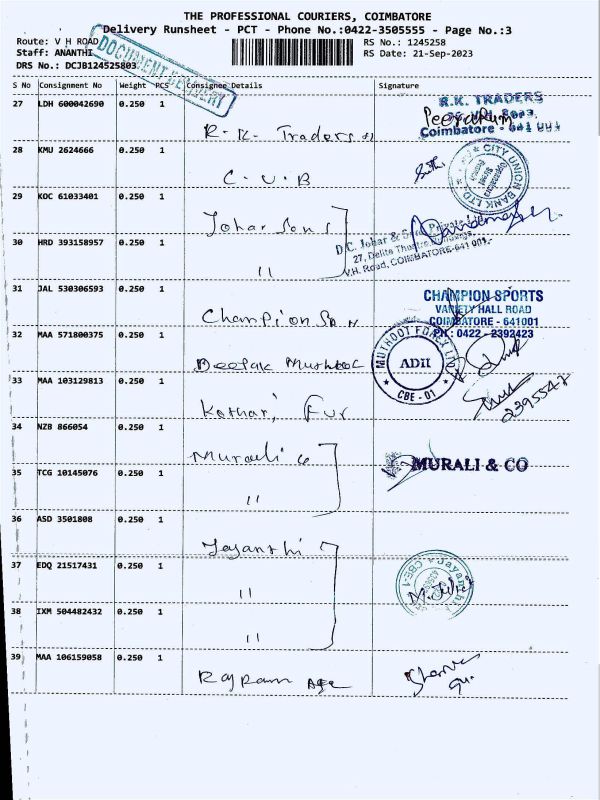 THE PROFESSIONAL COURIERS, COIMBATORE
Delivery Runsheet - PCT - Phone No.:0422-3505555 - Page No.:3
Route: V H ROAD
RS No.: 1245258
Staff: ANANTHI
RS Date: 21-Sep-2023
DRS No.: DCJB124525803
DOCUMENT DELIVERY
S No LDH Consignment No Weight PCS Consignee Details Signature
27 LDH 600042690 0.250 1 R.K. Traders
R.K. TRADERS
Coimbatore - 641 001
28 KMU 2624666 0.250 1 C.U.B
CITY UNION BANK LTD
29 KOC 61033401 0.250 1 Johar Sons
D.C. Johar & Sons Private Ltd
27, Delite Theatre Buildings,
V.H. Road, COIMBATORE-641 001.
30 HRD 393158957 0.250 1 "
31 JAL 530306593 0.250 1 Champion
CHAMPION SPORTS
VARIETY HALL ROAD
COIMBATORE - 641001
PH : 0422 - 2392423
32 MAA 571800375 0.250 1 Deepak
MUTHOOT FOREX LTD
ADII
CBE - 01
33 MAA 103129813 0.250 1 Kothari Fur
2395547
34 NZB 866054 0.250 1 Murali &
MURALI & CO
35 TCG 10145076 0.250 1 "
36 ASD 3501808 0.250 1 Jayanthi
37 EDQ 21517431 0.250 1 "
Jayanthi
38 IXM 504482432 0.250 1 "
39 MAA 106159058 0.250 1 Rajram Age